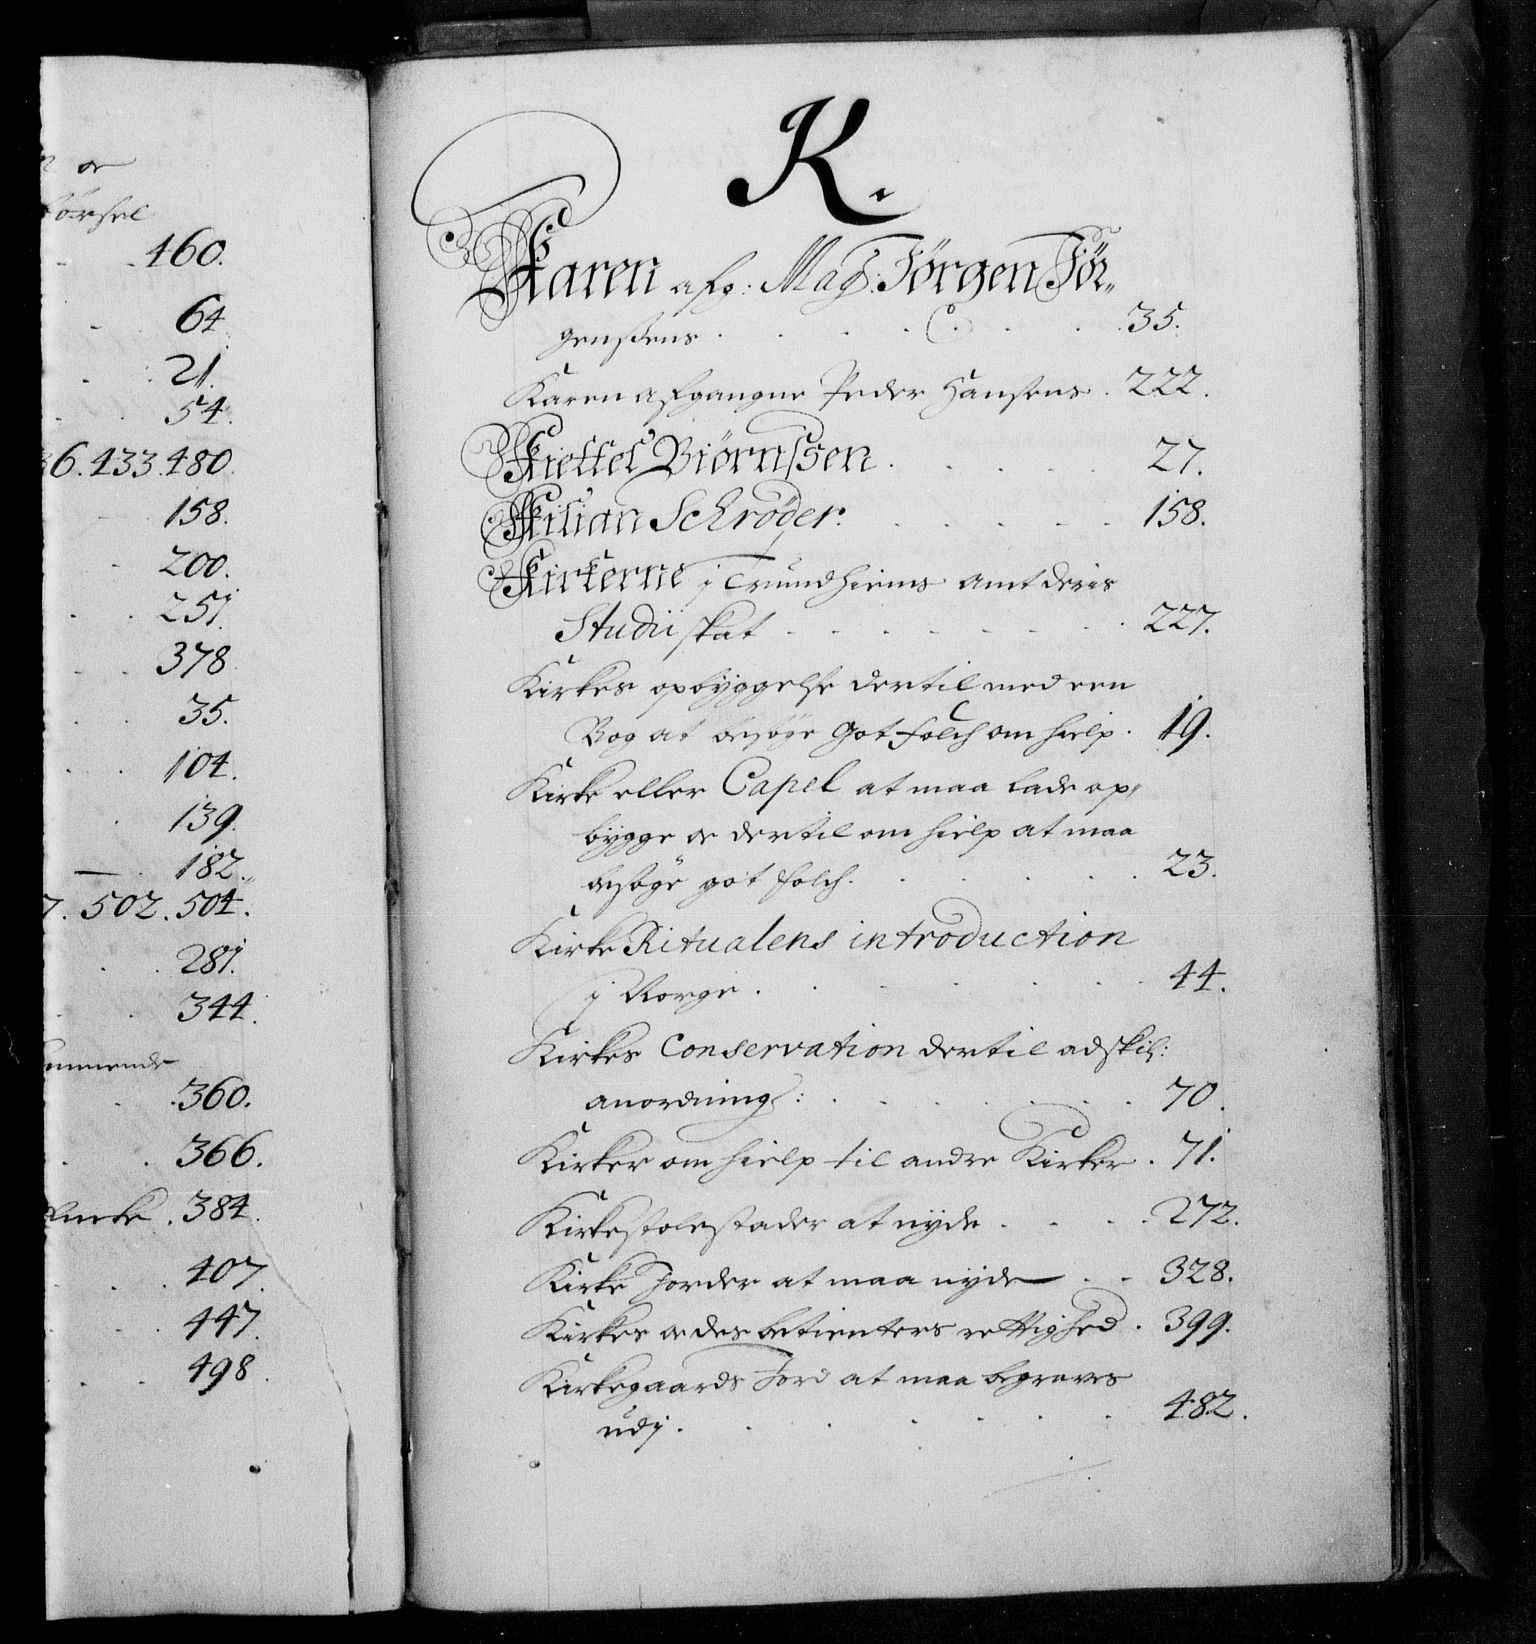 og
førsel
160.
64.
21.
54.
36.433.480.
158.
200.
251.
378.
35.
104.
139.
182.
7.502.504.
281.
344.
360.
366.
384.
407.
447.
498.
K.
Karen afg: Mag: Jørgen Jør„
genßens . . . . . . 35.
Karen afgangne Peder Hansens . 222.
Kiettel Biørnßen . . . . 27.
Kilian Schrøder . . . . . 158.
Kirkerne j Trundhiems Amt deris
Studii skat . . . . . . 227.
Kirkes opbyggelse dertil med een
Bog at besøge got folch om hielp . 19.
Kirke eller Capel at maa lade op„
bygge og dertil om hielp at maa
besøge got folch . . . . . 23.
Kirke Ritualens introduction
j Norge . . . . . . 44.
Kirkes Conservation dertil adskil:
anordning: . . . . . . 70.
Kirker om hielp til andre Kirker . 71.
Kirkestolestader at nyde . . . . 272.
Kirke Jorder at maa nyde . . 328.
Kirkes og des betienters rettighed . 399.
Kirkegaards Jord at maa begraves
udj . . . . . . 482.